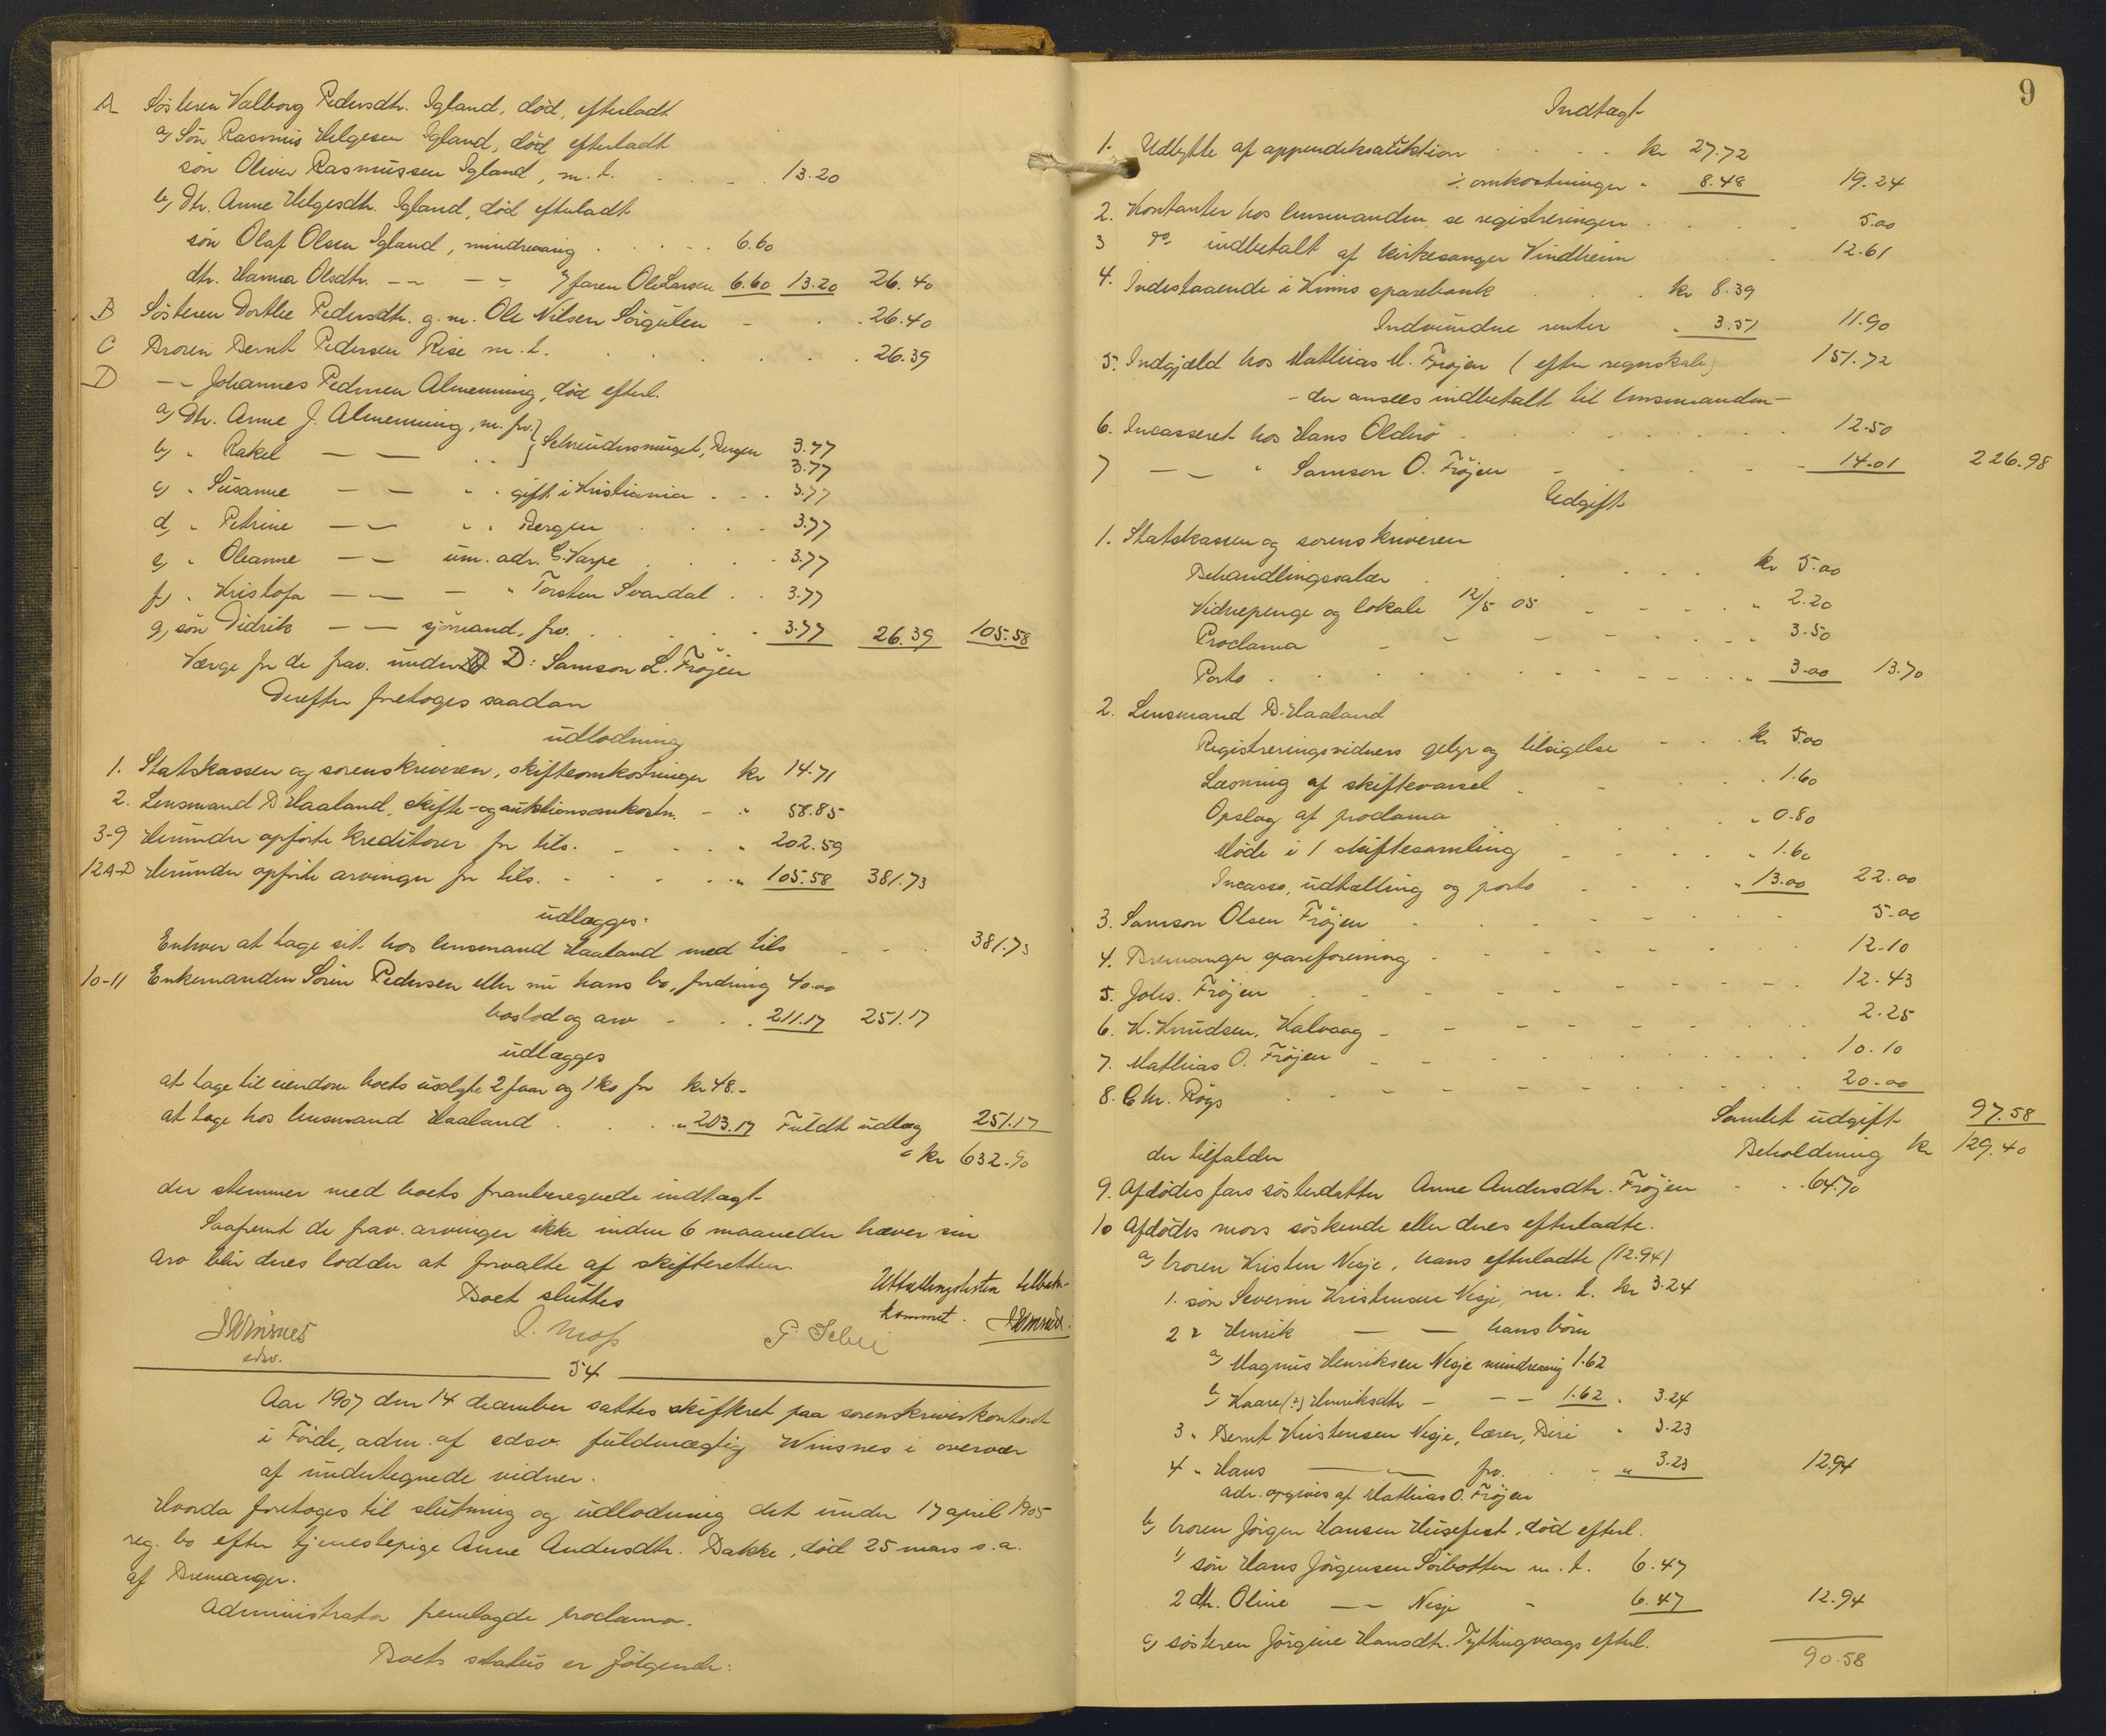 A Søsteren Valborg Pedersdtr. Igland, død, efterladt
a) Søn Rasmus Helgesen Igland, død efterladt
søn Oliver Rasmussen Igland, m. t. 13.20
b) Dtr. Anne Helgesdtr. Igland, død efterladt
søn Olaf Olsen Igland, mindreaarig 6.60
dtr. Hanna Olsdtr. — — faren Ole Larsen 6.60 13.20 26.40
B Søsteren Dorthe Pedersdtr. g. m. Ole Nilsen Sørgulen 26.40
C Broren Bernt Pedersen Rise m. t. 26.39
D — Johannes Pedersen Almenning, død efterl.
a) Dtr. Anne J. Almenning, m. fv. } Bergen 3.77
b) " Rakel — — " 3.77
c) " Susanne — — " " gift i Kristiania 3.77
d) " Petrine — — " " Bergen 3.77
e) " Oleanne — — um. adr. C. Harpe 3.77
f) " Kristofa — — — " Torsten Svardal 3.77
g) søn Didrik — — sjømand, fv. 3.77 26.39 105.58
Værge for de frav. under D: Samson L. Frøjen
Derefter foretoges saadan
udlodning
1. Statskassen og sorenskriveren, skifteomkostninger kr 14.71
2. Lensmand D. Haaland, skifte- og auktionsomkostn. - " 58.85
3-9 Herunder opførte kreditorer for tils. " 202.59
12A-D Herunder opførte arvinger for tils. " 105.58 381.73
udlægges:
Enhver at tage sit hos lensmand Haaland med tils 381.73
10-11 Enkemanden Søren Pedersen eller nu hans bo, fordring 40.00
boslod og arv 211.17 251.17
udlægges
at tage til eiendom boets usolgte 2 faar og 1 ko for kr 48.-
at tage hos lensmand Haaland " 203.17 Fuldt udlæg 251.17
= kr 632.90
der stemmer med boets foranberegnede indtægt
Saafremt de frav. arvinger ikke inden 6 maaneder hæver sin
arv blir deres lodder at forvalte af skifteretten.
Boet sluttes Uttællingslisten tilbake-
kommet. JWinsnes.
JWinsnes
edsv.
54
Aar 1907 den 14 december sattes skifteret paa sorenskriverkontoret
i Førde, adm. af edsv. fuldmægtig Winsnes i overvær
af undertegnede vidner.
Hvorda foretoges til slutning og udlodning det under 17 april 1905
reg. bo efter tjenestepige Anne Andersdtr. Bakke, død 25 mars s. a.
af Bremanger.
Administrator fremlagde proclama.
Boets status er følgende:
9
Indtægt
1. Udbytte af appendeksauktion kr 27.72
÷ omkostninger " 8.48 19.24
2. Kontanter hos lensmanden, se registreringen 5.00
3 do. indbetalt af kirkesanger Vindheim 12.61
4. Indestaaende i Kinns sparebank kr 8.39
Indvundne renter " 3.51 11.90
5. Indgjæld hos Mathias M. Frøjen (efter regnskab) 151.72
- der ansees indbetalt til lensmanden -
6. Incasseret hos Hans Olderø 12.50
7 — — " Samson O. Frøjen 14.01 226.98
Udgift
1. Statskassen og sorenskriveren
Behandlingssalær kr 5.00
Vidnepenge og lokale 12/5 05 " 2.20
Proclama " 3.50
Porto " 3.00 13.70
2. Lensmand D. Haaland
Registreringsvidners gebyr og tilsigelse kr 5.00
Læsning af skiftevarsel " 1.60
Opslag af proclama " 0.80
Møde i 1 skiftesamling " 1.60
Incasso, udtælling og porto " 13.00 22.00
3. Samson Olsen Frøjen 5.00
4. Bremanger spareforening 12.10
5. Johs. Frøjen 12.43
6. K. Knudsen, Kalvaag 2.25
7. Mathias O. Frøjen 10.10
8. Chr. Røys 20.00
Samlet udgift 97.58
der tilfalder Beholdning kr 129.40
9. Afdødes fars søsterdatter Anne Andersdtr. Frøjen 64.70
10 Afdødes mors søskende eller deres efterladte.
a) broren Kristen Nesje, hans efterladte (12.94)
1. søn Severin Kristensen Nesje, m. t. kr 3.24
2 " Henrik — — hans børn
a) Magnus Henriksen Nesje mindreaarig 1.62
b) Kaare(?) Henriksdtr — — — 1.62 " 3.24
3 " Bernt Kristensen Nesje, lærer, Biri " 3.23
4 " Hans — — fv. " 3.23 12.94
adr. opgives af Mathias O. Frøjen
b) broren Jørgen Hansen Husefest, død efterl.
1) søn Hans Jørgensen Sørbotten m. t. 6.47
2 dtr. Oline — — Nesje - 6.47 12.94
c) søsteren Jørgine Hansdtr. Tyttingvaags efterl.
90.58